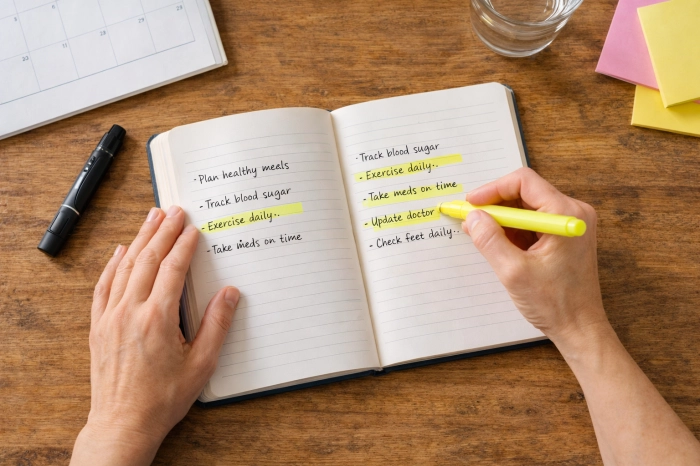 - Plan healthy meals
- Track blood sugar
- Exercise daily..
- Take meds on time
- Track blood sugar
- Exercise daily..
- Take meds on time
- Update doctor
- Check feet daily..